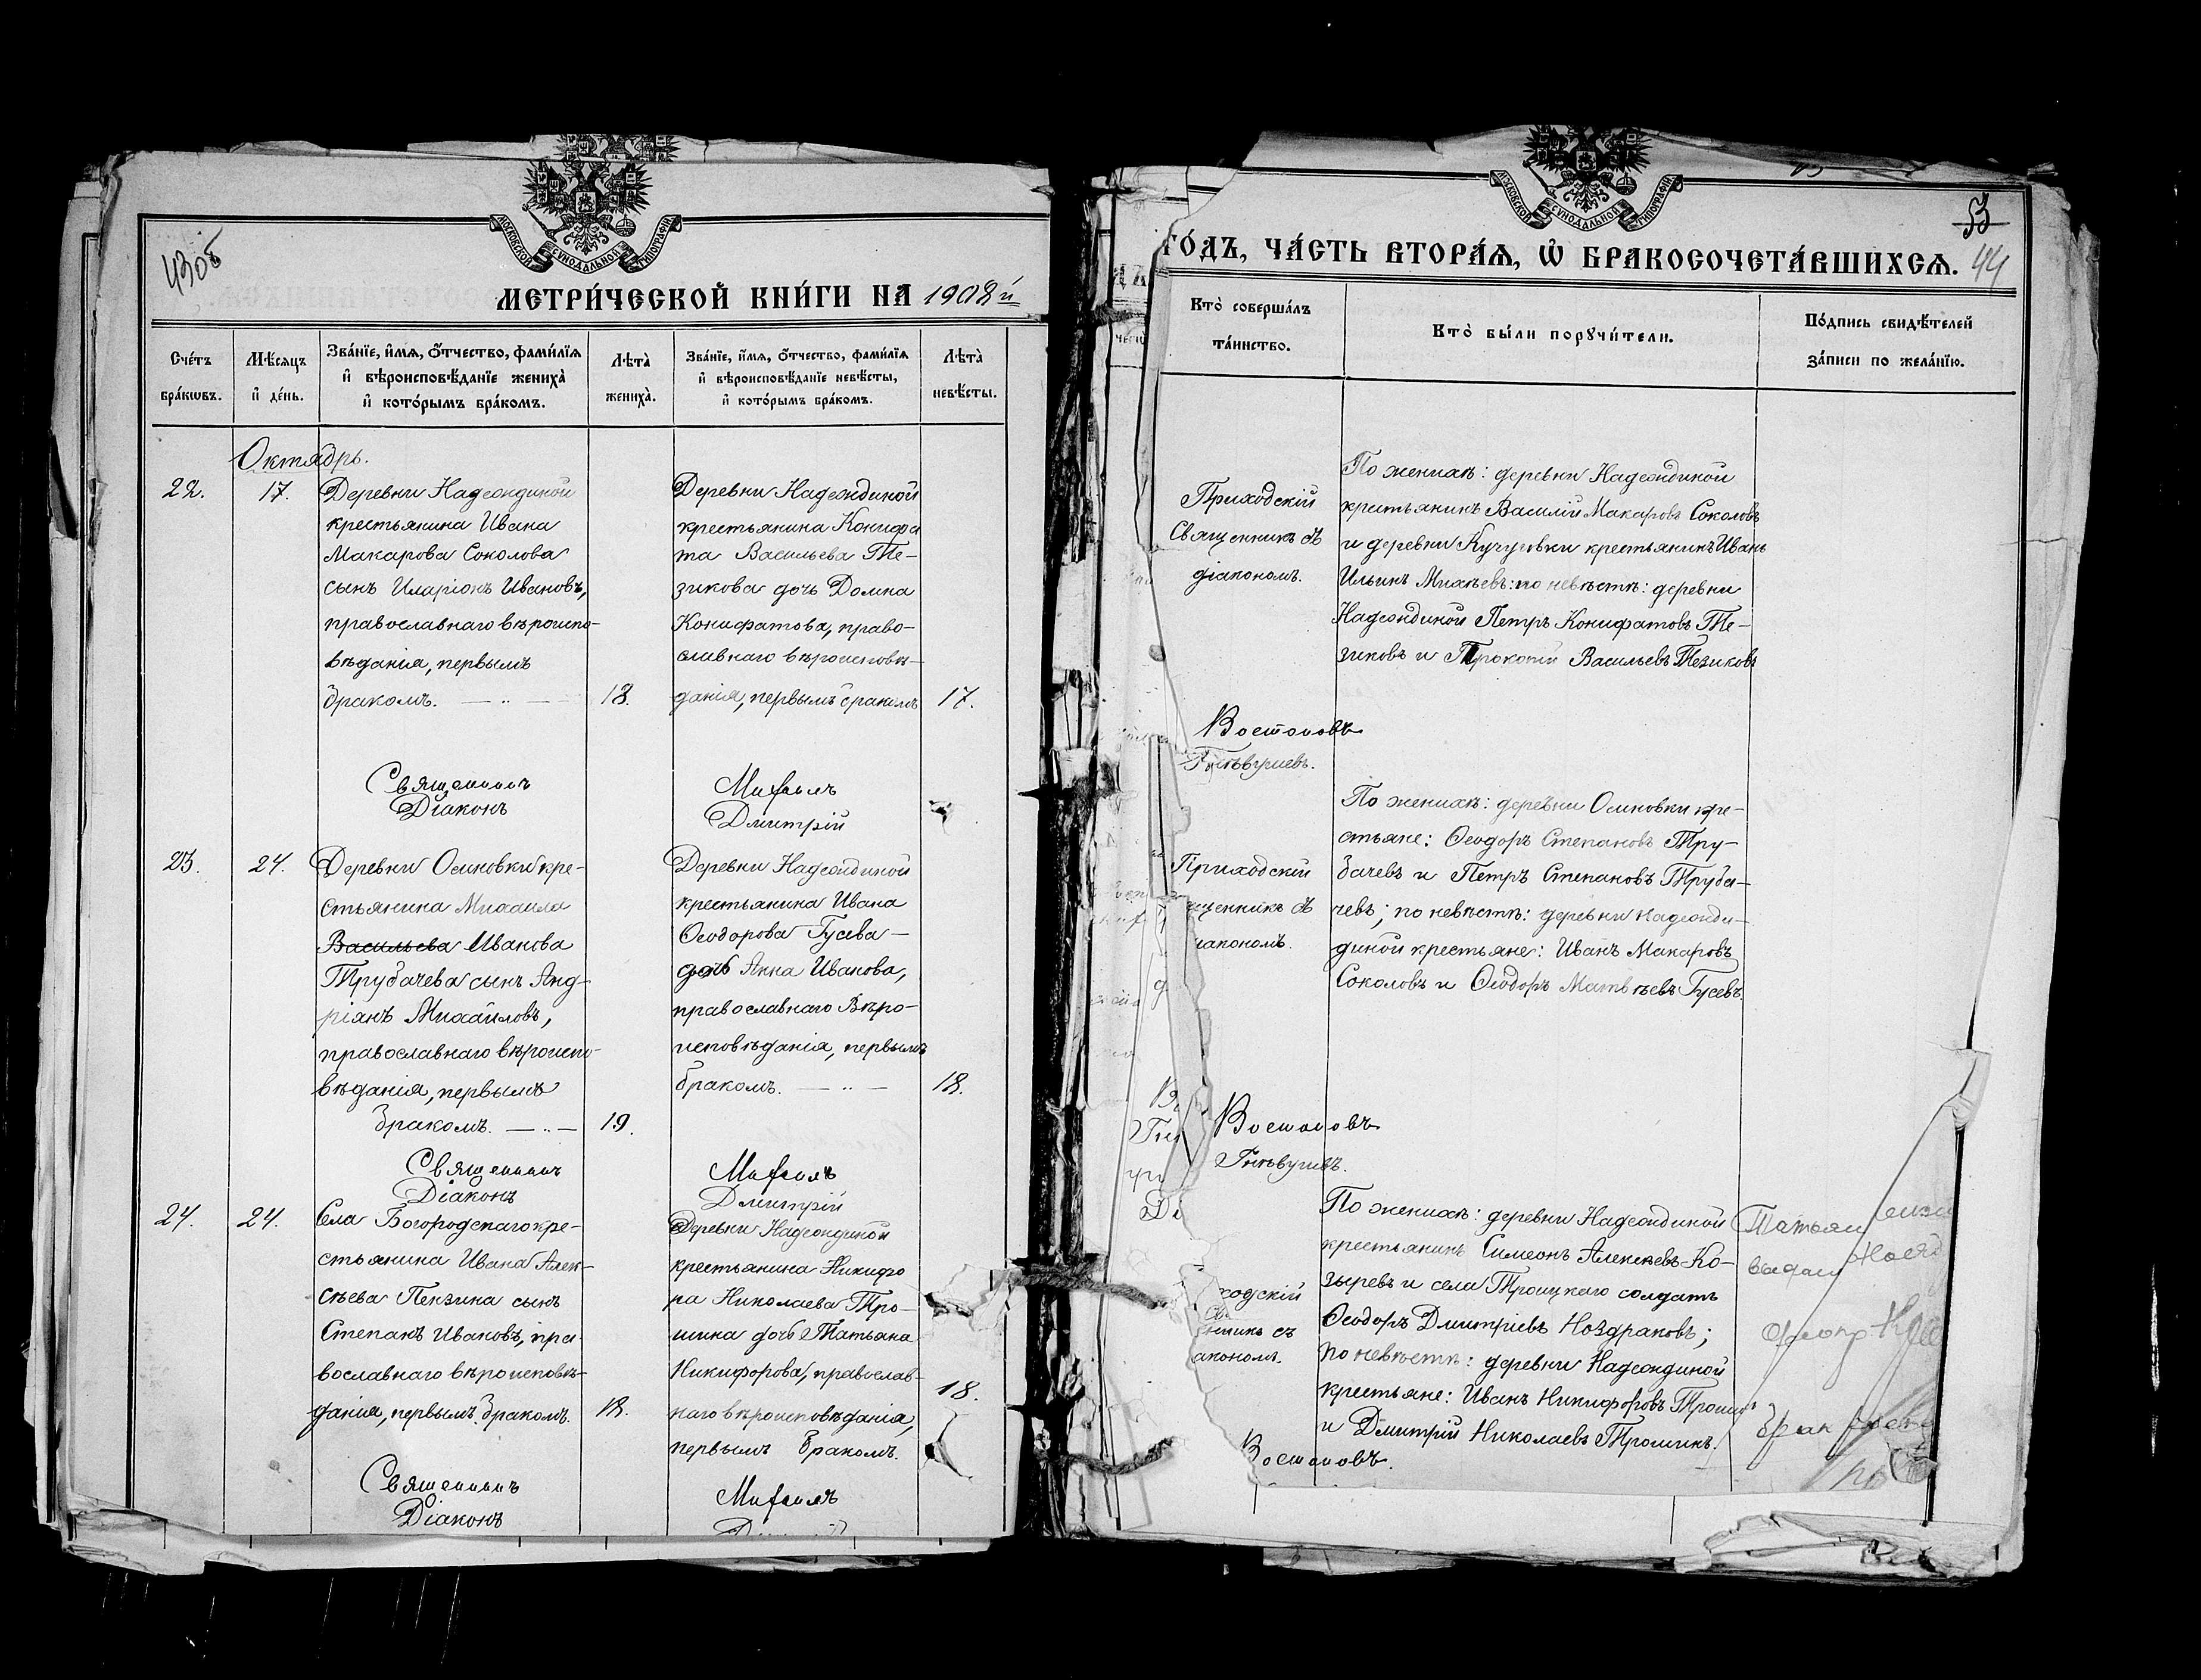 43об
МОСКОВСКОЙ СѴНОДАЛЬНОЙ ТИПОГРАФІИ
МЕТРИ́ЧЕСКОЙ КНИ́ГИ НА 1908 й
Сче́тъ бра́кѡвъ.
Мѣ́сяцъ и҆ де́нь.
Зва́нїе, и҆́мѧ, ѻ҆́тчество, фами́лїѧ
и҆ вѣроисповѣ́данїе жениха̀
и҆ кото́рымъ бра́комъ.
Лѣта̀ жениха̀.
Зва́нїе, и҆́мѧ, ѻ҆́тчество, фами́лїѧ
и҆ вѣроисповѣ́данїе невѣ́сты,
и҆ кото́рымъ бра́комъ.
Лѣта̀ невѣ́сты.
Октябрь.
22.
17.
Деревни Надеждиной
крестьянина Ивана
Макарова Соколова
сынъ Иларіонъ Ивановъ,
православнаго вѣроиспо-
вѣданія, первымъ
бракомъ.
18.
Деревни Надеждиной
крестьянина Конифа
та Васильева Те-
зикова дочь Домна
Конифатова, право-
славнаго вѣроисповѣ-
данія, первымъ бракомъ
17.
Священникъ
Діаконъ
Михаилъ
Дмитрій
23.
24.
Деревни Осиновки кре-
стьянина Михаила
Васильева Иванова
Трубачева сынъ Анд-
ріянъ Михайловъ,
православнаго вѣроиспо-
вѣданія, первымъ
бракомъ.
19.
Деревни Надеждиной
крестьянина Ивана
Ѳеодорова Гусева
дочь Анна Иванова,
православнаго вѣро-
исповѣданія, первымъ
бракомъ.
18.
Священникъ
Діаконъ
Михаилъ
Дмитрій
24.
24.
Села Богородскаго кре-
стьянина Ивана Алек-
сѣева Пензина сынъ
Степанъ Ивановъ, пра-
вославнаго вѣроисповѣ-
данія, первымъ бракомъ.
18.
Деревни Надеждиной
крестьянина Никифо
ра Николаева Тро-
шина дочь Татьяна
Никифорова, православ-
наго вѣроисповѣданія,
первымъ бракомъ.
18.
Священникъ
Діаконъ
Михаилъ
МОСКОВСКОЙ СѴНОДАЛЬНОЙ ТИПОГРАФІИ
53
ГО́ДЪ, ЧА́СТЬ ВТОРА́Ѧ, Ѡ҆ БРАКОСОЧЕТА́ВШИХСѦ. 44
Кто̀ соверша́лъ
та́инство.
Кто̀ бы́ли порꙋчи́тели.
По́дпись свидѣ́телей
за́писи по жела́нїю.
Приходскій
Священникъ съ
діакономъ.
По женихѣ: деревни Надеждиной
крестьянинъ Василій Макаровъ Соколовъ
и деревни Кучуговки крестьянинъ Иванъ
Ильинъ Михѣевъ: по невѣстѣ: деревни
Надеждиной Петръ Конифатовъ Те-
зиковъ и Прокопій Васильевъ Тезиковъ
Востоковъ
Гнѣвушевъ.
Приходскій
щенникъ съ
іакономъ.
По женихѣ: деревни Осиновки кре-
стьяне: Ѳеодоръ Степановъ Тру-
бачевъ и Петръ Степановъ Труба-
чевъ; по невѣстѣ: деревни Надежди-
диной крестьяне: Иванъ Макаровъ
Соколовъ и Ѳеодоръ Матвѣевъ Гусевъ.
Востоковъ
Гнѣвушевъ.
ходскій
Св.
енникъ съ
акономъ.
По женихѣ: деревни Надеждиной
крестьянинъ Симеонъ Алексѣевъ Ко-
зыревъ и села Троицкаго солдатъ
Ѳеодоръ Дмитріевъ Ноздраковъ;
по невѣстѣ: деревни Надеждиной
крестьяне: Иванъ Никифоровъ Трошинъ
и Дмитрій Николаевъ Трошинъ.
Востоковъ.
Татьян
выдан